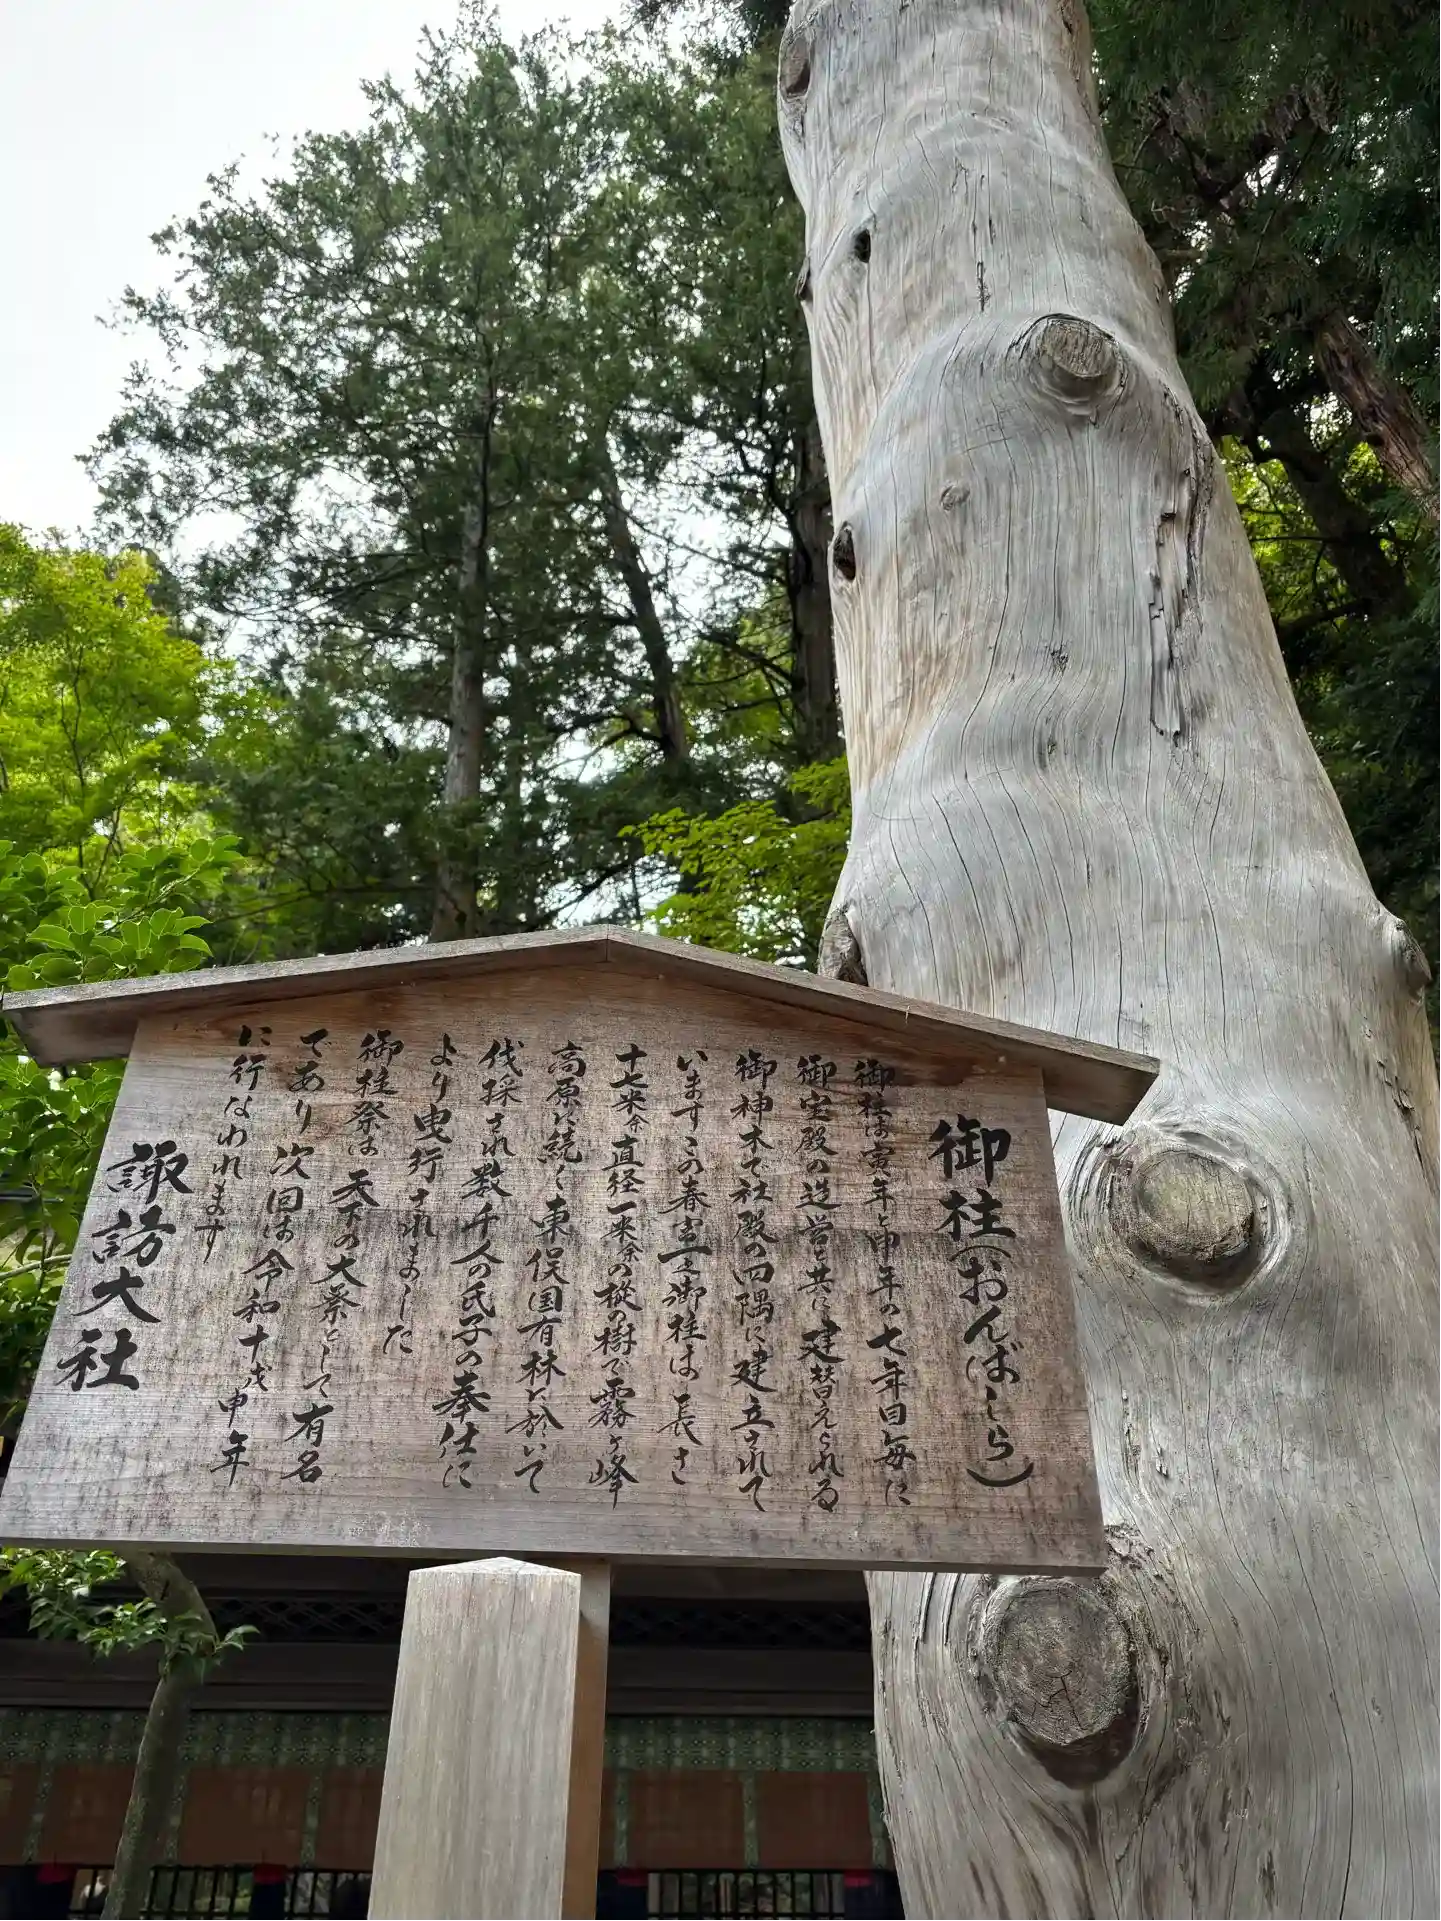 御柱(おんばしら)
御柱は寅年と申年の七年目毎に
御宝殿の造営と共に建替えられる
御神木で社殿の四隅に建立されて
いますこの春宮一之御柱は長さ
十七米余直径一米余の樅の樹で霧ヶ峰
高原に続く東俣国有林に於いて
伐採され数千人の氏子の奉仕に
より曳行されました
御柱祭は天下の大祭として有名
であり次回は令和十戊申年
に行なわれます
諏訪大社